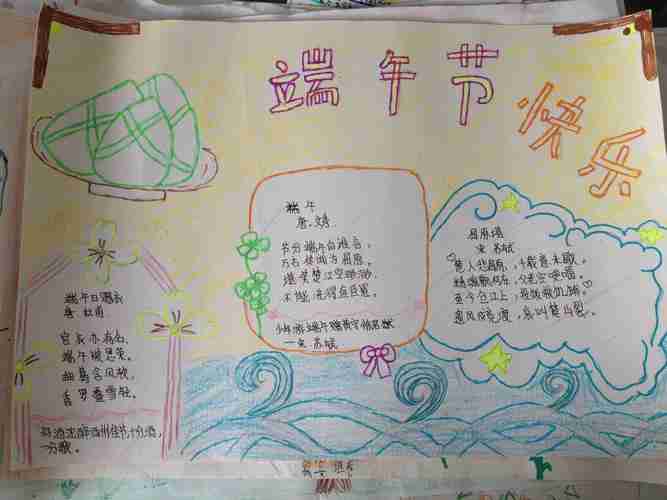 端午节
快乐
端午
唐·文秀
节分端午自谁言，
万古传闻为屈原。
堪笑楚江空渺渺，
不能洗得直臣冤。
宋 苏轼
屈原塔
宋 苏轼
楚人悲屈原，千载意未歇。
精魂飘何在，父老空哽咽。
至今仓江上，投饭救饥渴。
遗风成竞渡，哀叫楚山裂。
端午日赐衣
唐 杜甫
宫衣亦有名，
端午被恩荣。
细葛含风软，
香罗叠雪轻。
一分歌。